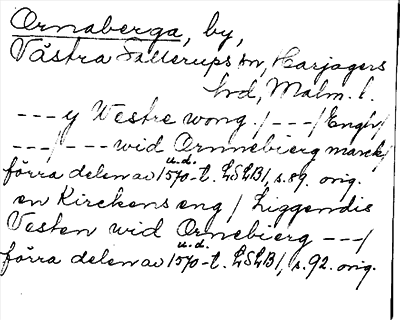 Ornaberga, by,
Västra Sallerups sn, Harjagers
hd, Malm. l.
---y Westre wong /---/ Engh/
---/---wid Ornnebierg marck/
u.d.
förra delen av 1570-t. LSLB1, s.89. orig.
en Kirckens eng / Liggendis
Vesten wid Ornebierg ---/
u.d.
förra delen av 1570-t. LSLB1, s.92. orig.